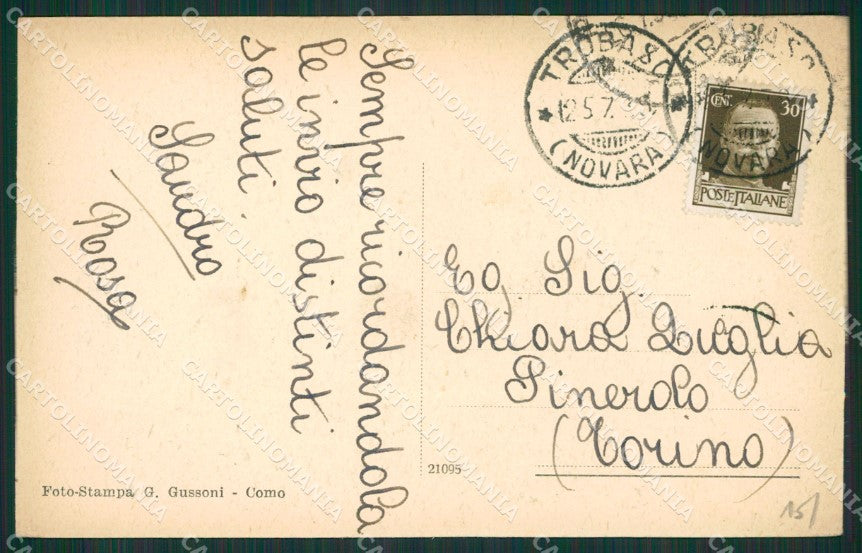 Sempre ricordandola
le invio distinti
saluti.
Sandro
Rosa
TROBASO
12.5.7.
(NOVARA)
TROBASO
NOVARA)
CENT. 30
POSTE ITALIANE
Eg. Sig.
Chiara Luglia
Pinerolo
(Torino)
21095
Foto-Stampa G. Gussoni - Como
15/
CARTOLINOMANIA